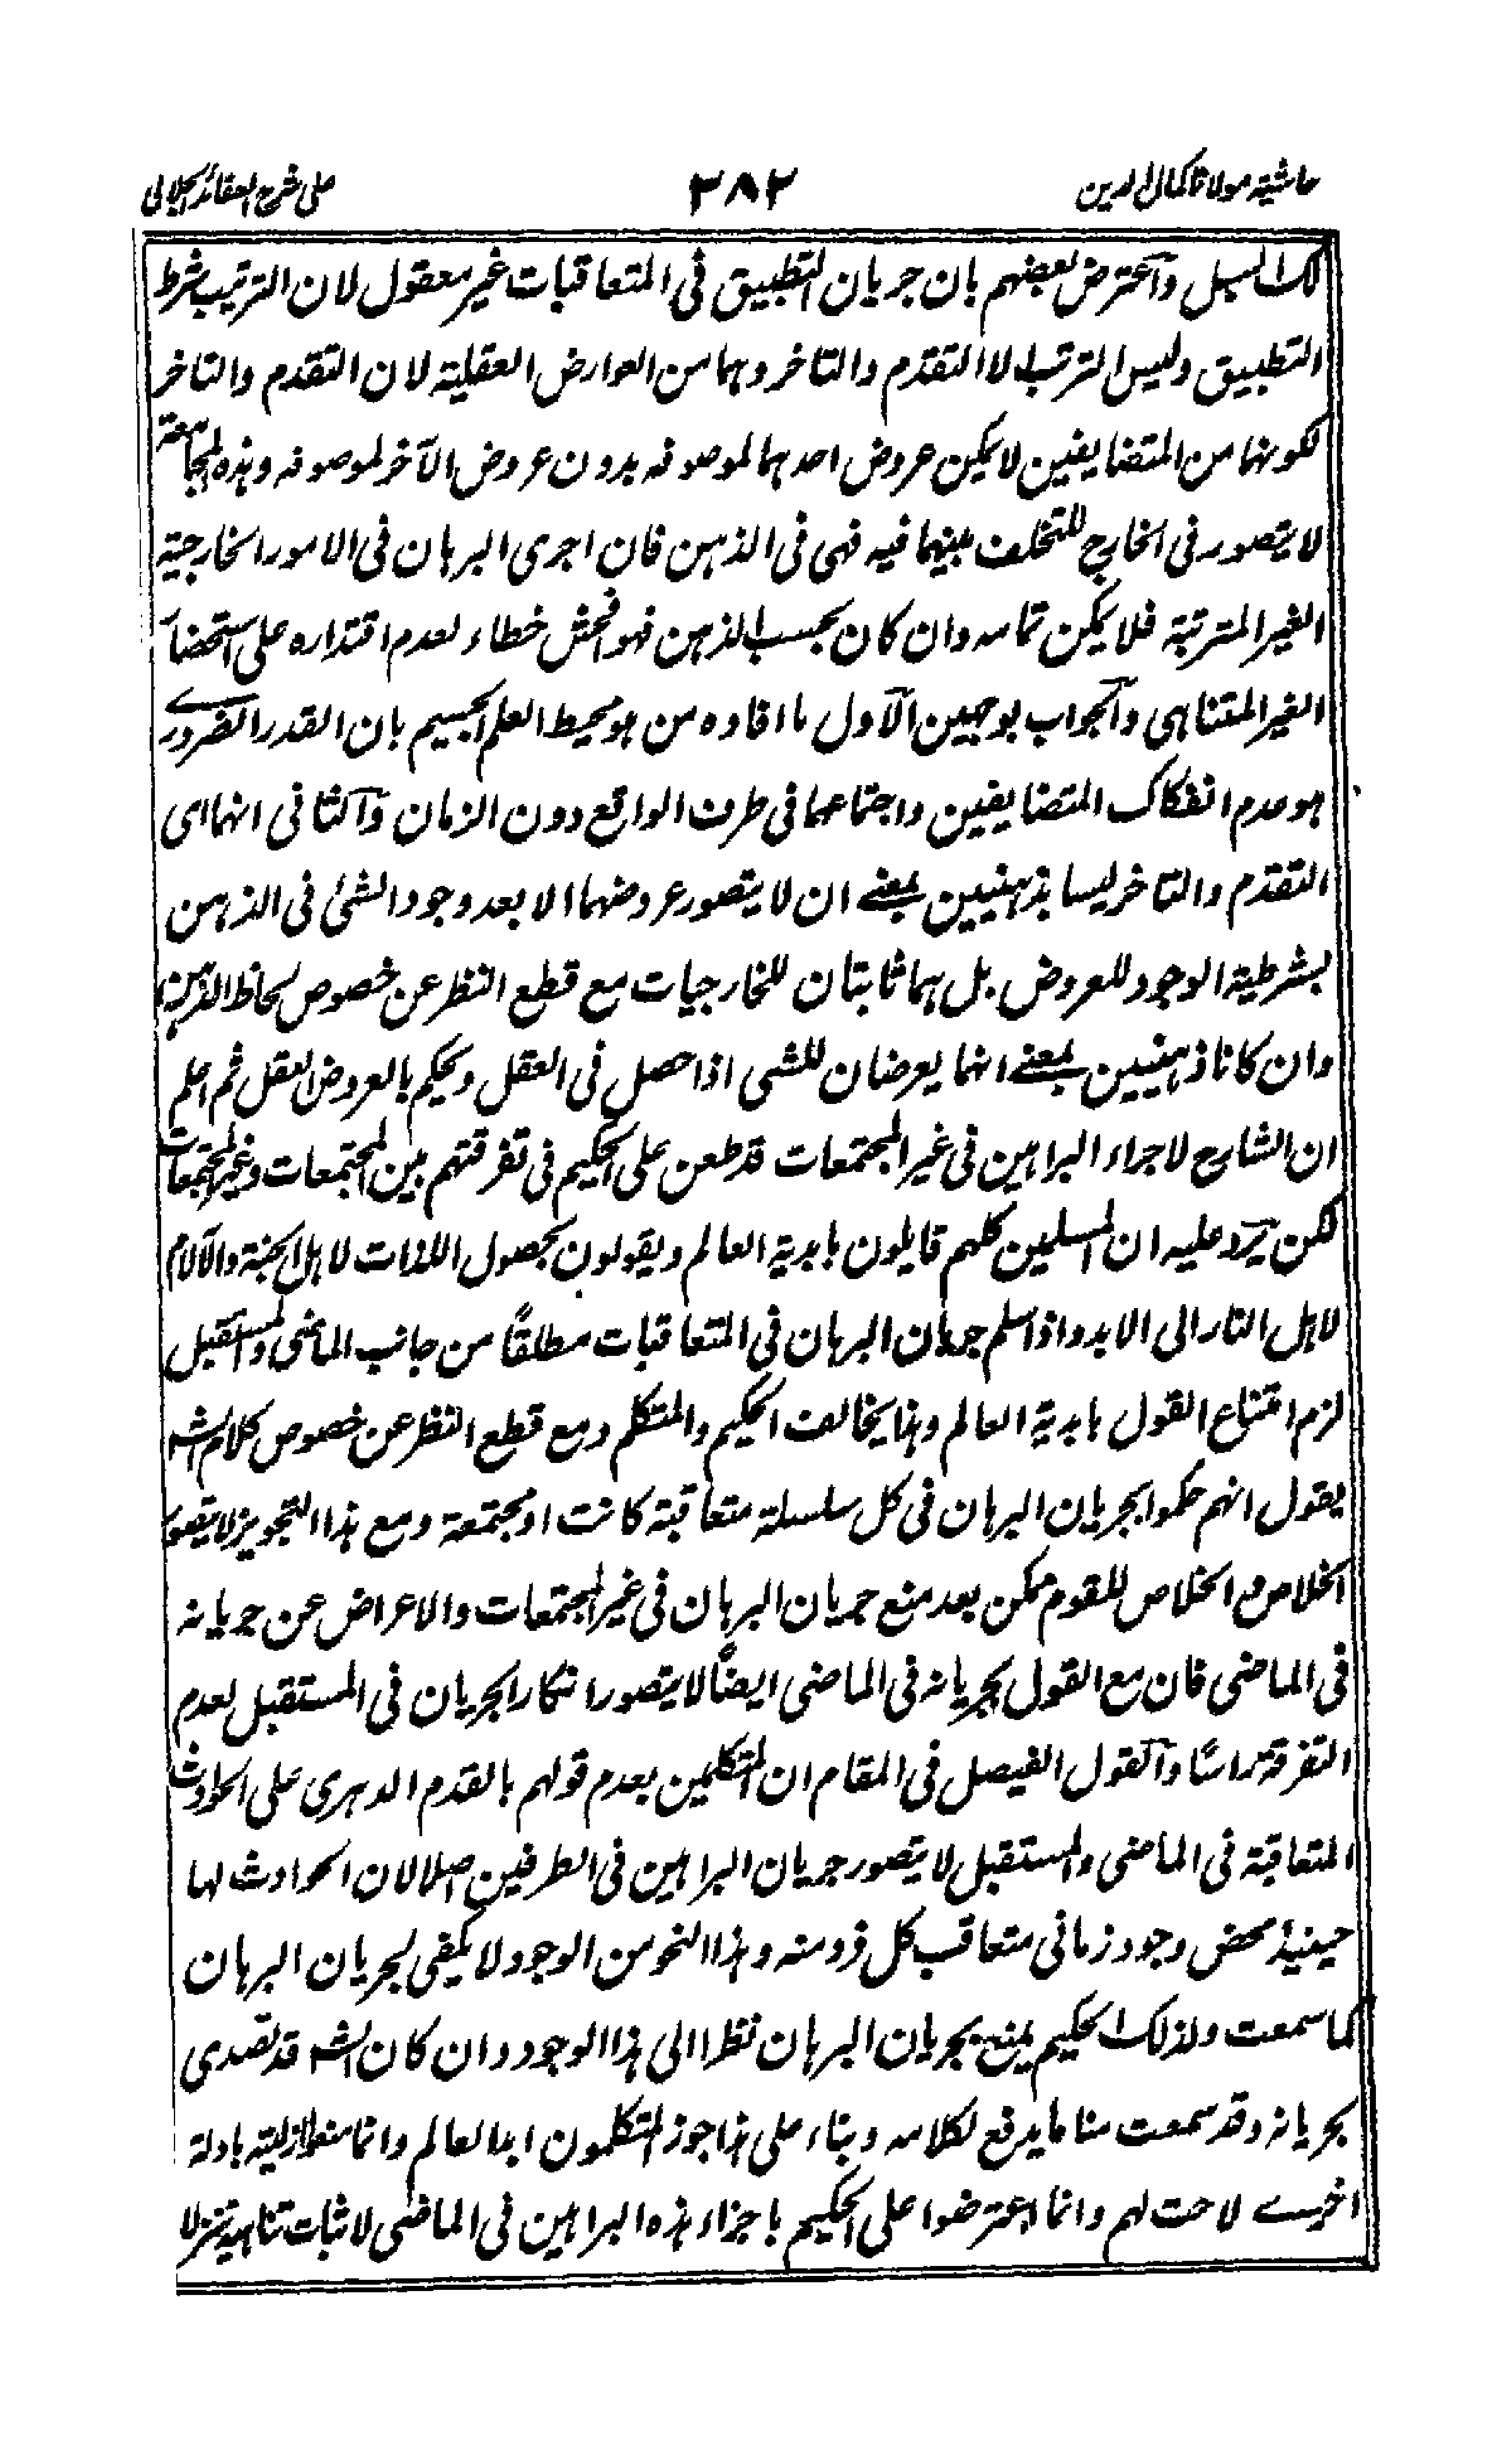 حاشية مولانا كمال الدين ٢٨٢ على شرح العقائد الجلالى
لك السبل وآعترض بعضهم بان جريان التطبيق فى المتعاقبات غير معقول لان الترتيب شرط
التطبيق وليس الترتيب الا التقدم والتاخر وهما من العوارض العقلية لان التقدم والتاخر
لكونهما من المتضايفين لا يمكن عروض احدهما لموصوفه بدون عروض الآخر لموصوفه وهذه المجامعة
لا يتصور فى الخارج للتخلف بينهما فيه فهى فى الذهن فان اجرى البرهان فى الامور الخارجية
الغير المترتبة فلا يمكن تمامه وان كان بحسب الذهن فهو افحش خطاء لعدم اقتداره على استحضار
الغير المتناهى وآلجواب بوجهين الآول ما افاده من هو محيط العلم الجسيم بان القدر الضرورے
هو عدم انفكاك المتضايفين واجتماعهما فى ظرف الواقع دون الزمان وآلثانى انهما اى
التقدم والتاخر ليسا بذهنيين بمعنے ان لا يتصور عروضهما الا بعد وجود الشئ فى الذهن
بشرطية الوجود للعروض بل هما ثابتان للخارجيات مع قطع النظر عن خصوص لحاظ الذهن
وان كانا ذهنيين بمعنے انهما يعرضان للشى اذا حصل فى العقل ويحكم بالعروض العقل ثم اعلم
ان الشارح لاجراء البراهين فى غير المجتمعات قد طعن على الحكيم فى تفرقتهم بين المجتمعات وغير المجتمعات
لكن يرد عليه ان المسلمين كلهم قايلون بابدية العالم ويقولون بحصول اللذات لاهل الجنة والآلام
لاهل النار الى الابد واذا سلم جريان البرهان فى المتعاقبات مطلقًا من جانب الماضى والمستقبل
لزم امتناع القول بابدية العالم وهذا يخالف الحكيم والمتكلم ومع قطع النظر عن خصوص كلام الشه
يقول انهم حكموا بجريان البرهان فى كل سلسلة متعاقبة كانت او مجتمعة ومع هذا التجويز لا يتصور
الخلاص والخلاص للقوم ممكن بعد منع جريان البرهان فى غير المجتمعات والاعراض عن جريانه
فى الماضى فان مع القول بجريانه فى الماضى ايضًا لا يتصور انكار الجريان فى المستقبل لعدم
التفرقة راسًا وآلقول الفيصل فى المقام ان المتكلمين بعدم قولهم بالقدم الدهرى على الحوادث
المتعاقبة فى الماضى والمستقبل لا يتصور جريان البراهين فى الطرفين اصلا لان الحوادث لها
حينئذ محض وجود زمانى متعاقب كل فرد منه وهذا النحو من الوجود لا يكفى لجريان البرهان
كما سمعت ولذلك الحكيم يمنع بجريان البرهان نظرا الى هذا الوجود وان كان الشه قد تصدى
بجريانه وقد سمعت منا ما يدفع لكلامه وبناء على هذا جوز المتكلمون ابدا لعالم وانما منعوا ازليته بادلة
اخرے لاحت لهم وانما اعترضوا على الحكيم باجراء هذه البراهين فى الماضى لاثبات تناهيه تنزلا